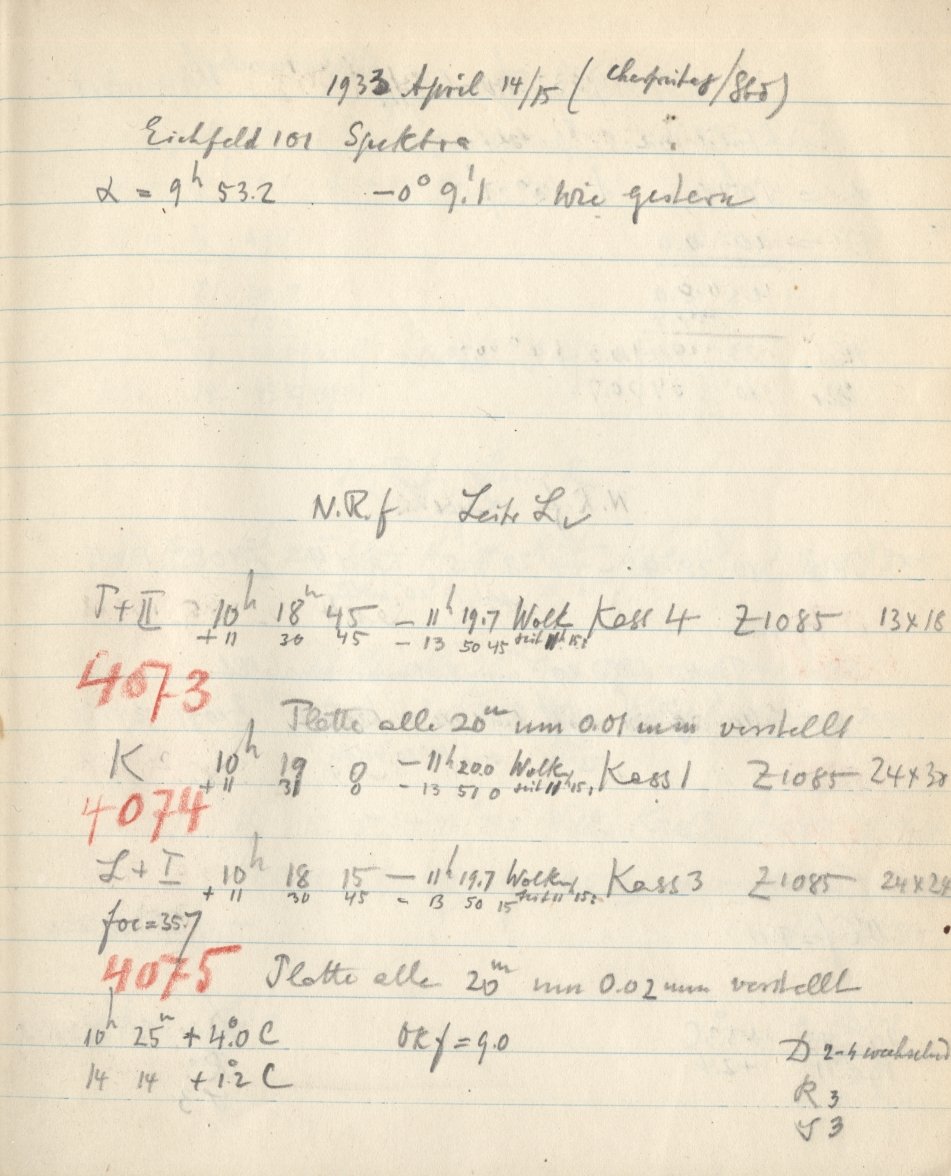 1933 April 14/15 (
Eichfeld 101 Spektra
α = 9h 53.2 -0° 9.'1 wie gestern
N.R.f Leitr L
T+II 10h 18m 45 - 11h 19.7 Wolk Kass 4 Z1085 13x18
+11 30 45 - 13 50 45 seit 11h 15
4073
Platte alle 20m um 0.01 mm verstellt
K 10h 19 0 - 11h 20.0 Wolk Kass 1 Z1085 24x30
+11 31 0 - 13 51 0 seit 11h 15
4074
L+I 10h 18 15 - 11h 19.7 Wolken Kass 3 Z1085 24x24
+11 30 45 - 13 50 15 seit 11h 15
foc=35.7
4075 Platte alle 20m um 0.02 mm verstellt
10h 25m +4.°0 C OKf = 9.0 D 2-4 wechselnd
14 14 +1.°2 C R 3
3